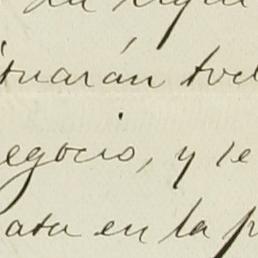 ituarán tod
egocio, y le
ata en la p